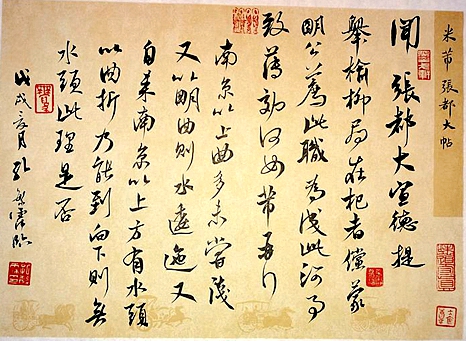 米芾 張都大帖
聞 張都大宣德提
舉榆柳局在杞者儻蒙
明公薦此職為淺此河事
致薄効何如芾再行
南京以上曲多未嘗淺
又以明曲則水逶迤又
自來南京以上方有水頭
以曲折乃能到向下則無
水頭此理是否
戊戌亥月孔 臨